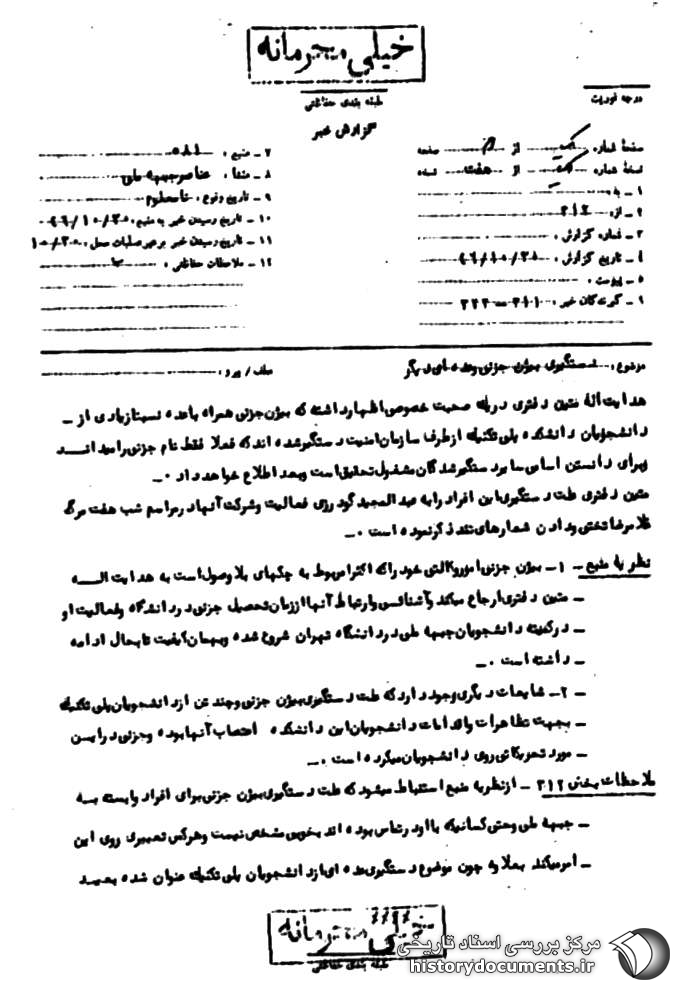 خیلی محرمانه
طبقه بندی حفاظتی
درجه فوریت
گزارش خبر
صفحهٔ شماره یک از صفحه
نسخهٔ شماره یک از هفت نسخه
۱ – به :
۲ – از : ۳۱۲
۳ – شماره گزارش :
۴ – تاریخ گزارش :
۵ – پیوست :
۶ – گیرندگان خبر :
۷ – منبع :
۸ – منشاء : عناصر جبهه ملی
۹ – تاریخ وقوع : نامعلوم
۱۰ – تاریخ رسیدن خبر به منبع :
۱۱ – تاریخ رسیدن خبر به رهبر عملیات محل :
۱۲ – ملاحظات حفاظتی :
موضوع : دستگیری بیژن جزنی وعده ای دیگر
عطف / پیرو :
هدایت اله متین دفتری در یک صحبت خصوصی اظهار داشته که بیژن جزنی همراه با عده نسبتا زیادی از –
دانشجویان دانشکده پلی تکنیک از طرف سازمان امنیت دستگیر شده اند که فعلا فقط نام جزنی را میدانــد
وبرای دانستن اسامی سایر دستگیر شدگان مشغول تحقیق است وبعد اطلاع خواهد داد ۰ –
متین دفتری علت دستگیری این افراد را به عبدالمجید گودرزی فعالیت وشرکت آنها در مراسم شب هفت مرگ
غلامرضا تختی ودادن شعارهای تند ذکر نموده است ۰ –
نظریه منبع – ۱ – بیژن جزنی امور وکالتی خود را که اکثرا مربوط به چکهای بلا وصول است به هدایت الــه
– متین دفتری ارجاع میکند وآشنائی وارتباط آنها از زمان تحصیل جزنی در دانشگاه وفعالیت او
– در کمیته دانشجویان جبهه ملی در دانشگاه تهران شروع شده وبهمان کیفیت تا بحال ادامه
– داشته است ۰ –
– ۲ – شایعات دیگری وجود دارد که علت دستگیری بیژن جزنی وچند تن از دانشجویان پلی تکنیک
– بجهت تظاهرات واقدامات دانشجویان این دانشکده اعتصاب آنها بوده وجزنی در ایــن
– مورد تحریکاتی روی دانشجویان میکرده است ۰ –
ملاحظات بخش ۳۱۲ – از نظریه منبع استنباط میشود که علت دستگیری بیژن جزنی برای افراد وابسته بــه
– جبهه ملی وحتی کسانیکه با او در تماس بوده اند بخوبی مشخص نیست وهر کس تعبیری روی این
– امر میکند بعلاوه چون موضوع دستگیری عده ای از دانشجویان پلی تکنیک عنوان شده بعیــد
خیلی محرمانه
طبقه بندی حفاظتی
مرکز بررسی اسناد تاریخی
historydocuments.ir